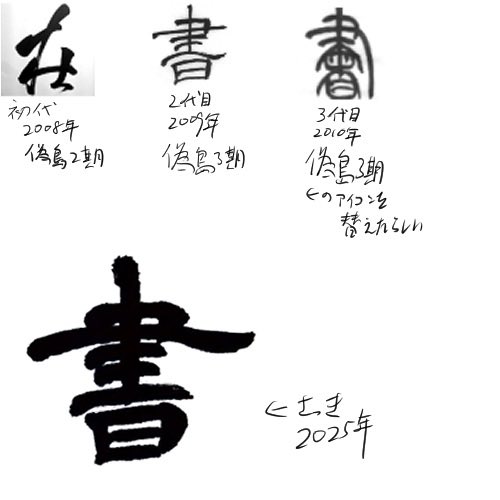 在
初代
2008年
偽島2期
書
2代目
2009年
偽島3期
書
3代目
2010年
偽島3期
←のアイコンを
替えたらしい
書
←さっき
2025年